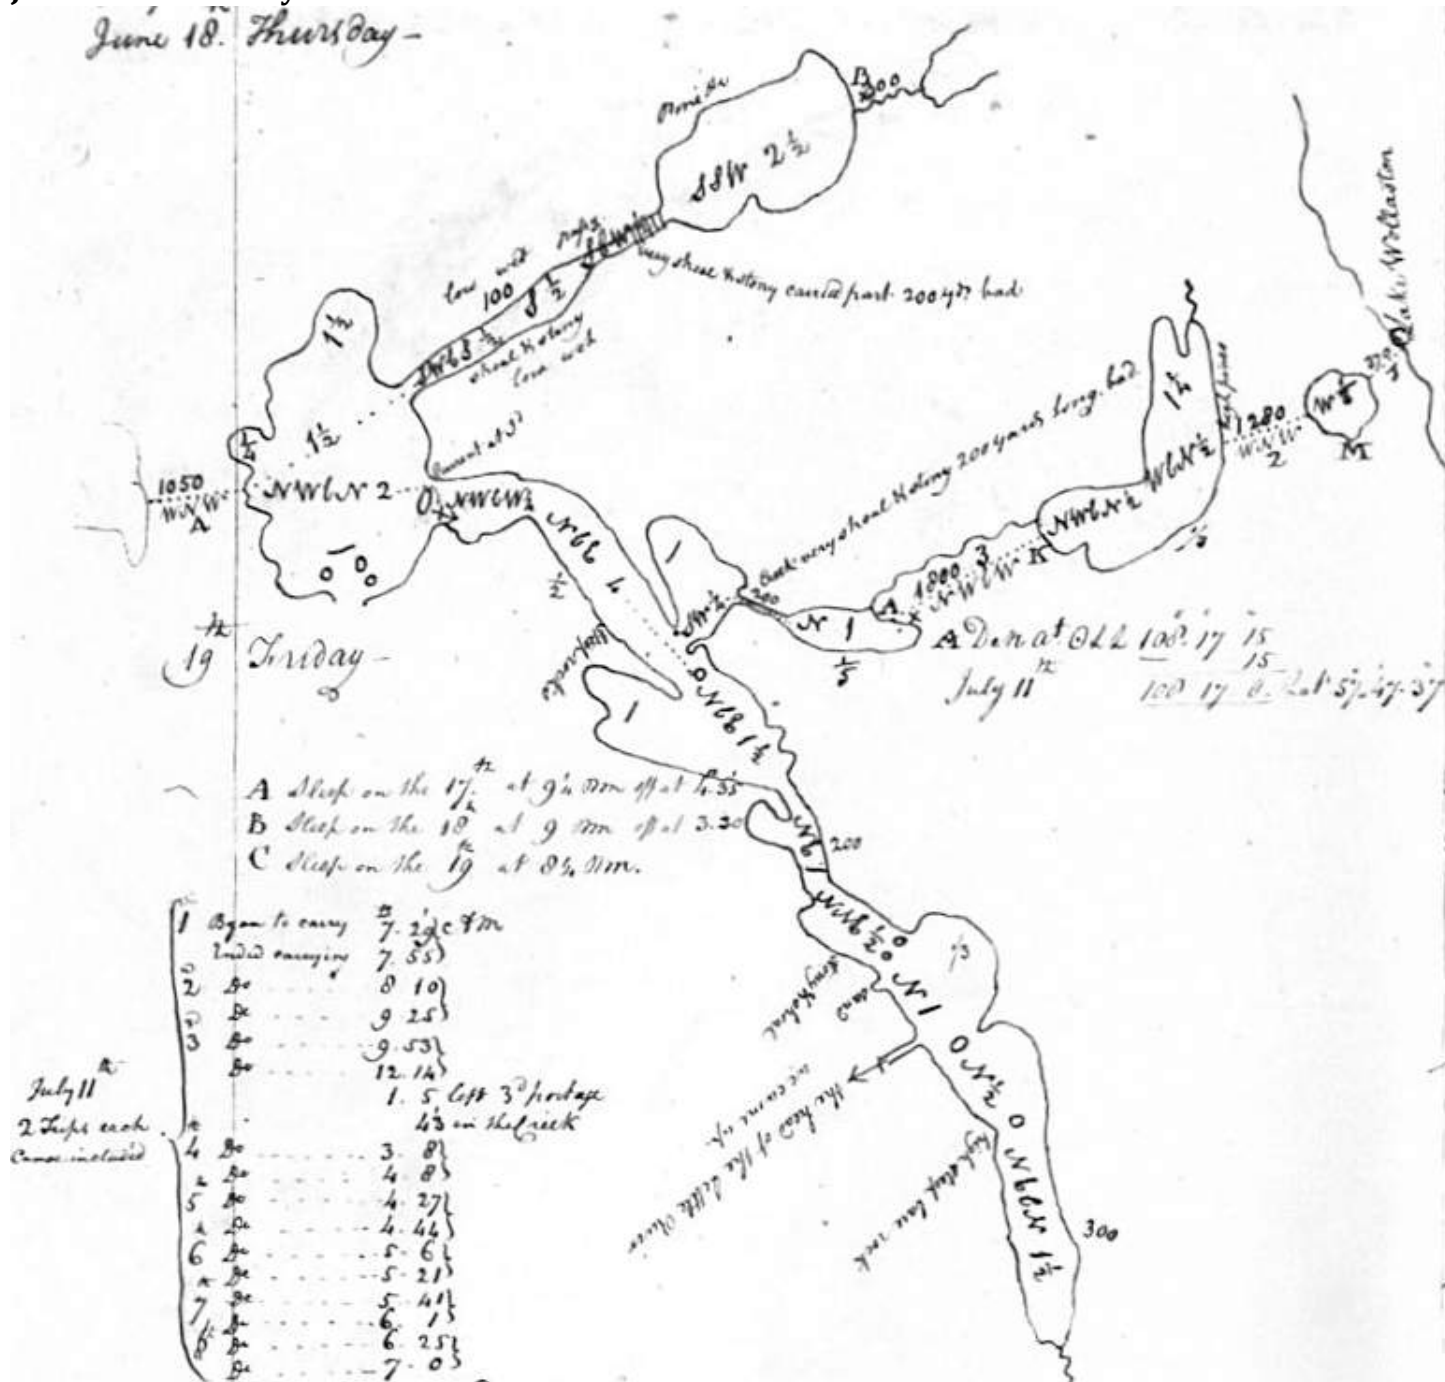 June 18. Thursday -
B
300
SSW 2½
low wet
100
S ½
very shoal & stony carried part 200 yds bad
SWbS ½
shoal & stony
low wet
1½
1½
¼
Current at 3d
1050
WNW
A
NWbN 2
NWbW ½
NbE 4
½
1
SW ¼
200
very shoal & stony 200 yards long. bad
N 1
⅕
A
1800 3
NWbW
K
NWbN ½
WbN ½
1¼
⅓
high pines
1280
WNW
2
W ⅛
M
370
Lake Wollaston
A Den at 108. 17 15
15
July 11th
108 17 0 Lat 57. 47. 37
19th Friday -
1
NbE 1½
A Sleep on the 17th at 9¼ PM off at 4.35
B Sleep on the 18th at 9 PM off at 3.30
C Sleep on the 19th at 8¾ PM.
Nb 1
200
NbE ½
⅓
N 1
Stony & shoal
and
the head of the Little River
we came up
N ½
high steep bare rock
NbEN 1½
300
July 11th
2 Trips each
Canoe included
1 Began to carry 7. 29 AM
Ended carrying 7. 55
2d Do 8 10
Do 9 25
3d Do 9. 53
Do 12. 14
1. 5 left 3d portage
43 in the Creek
4th Do 3. 8
Do 4 8
5th Do 4. 27
Do 4. 44
6th Do 5. 6
Do 5. 21
7th Do 5. 41
Do 6. 1
8th Do 6. 25
Do 7. 0